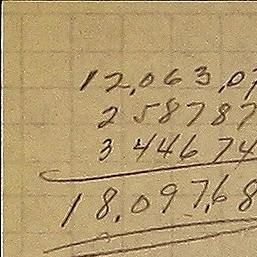 12,063,07
258787
344674
18,097,68